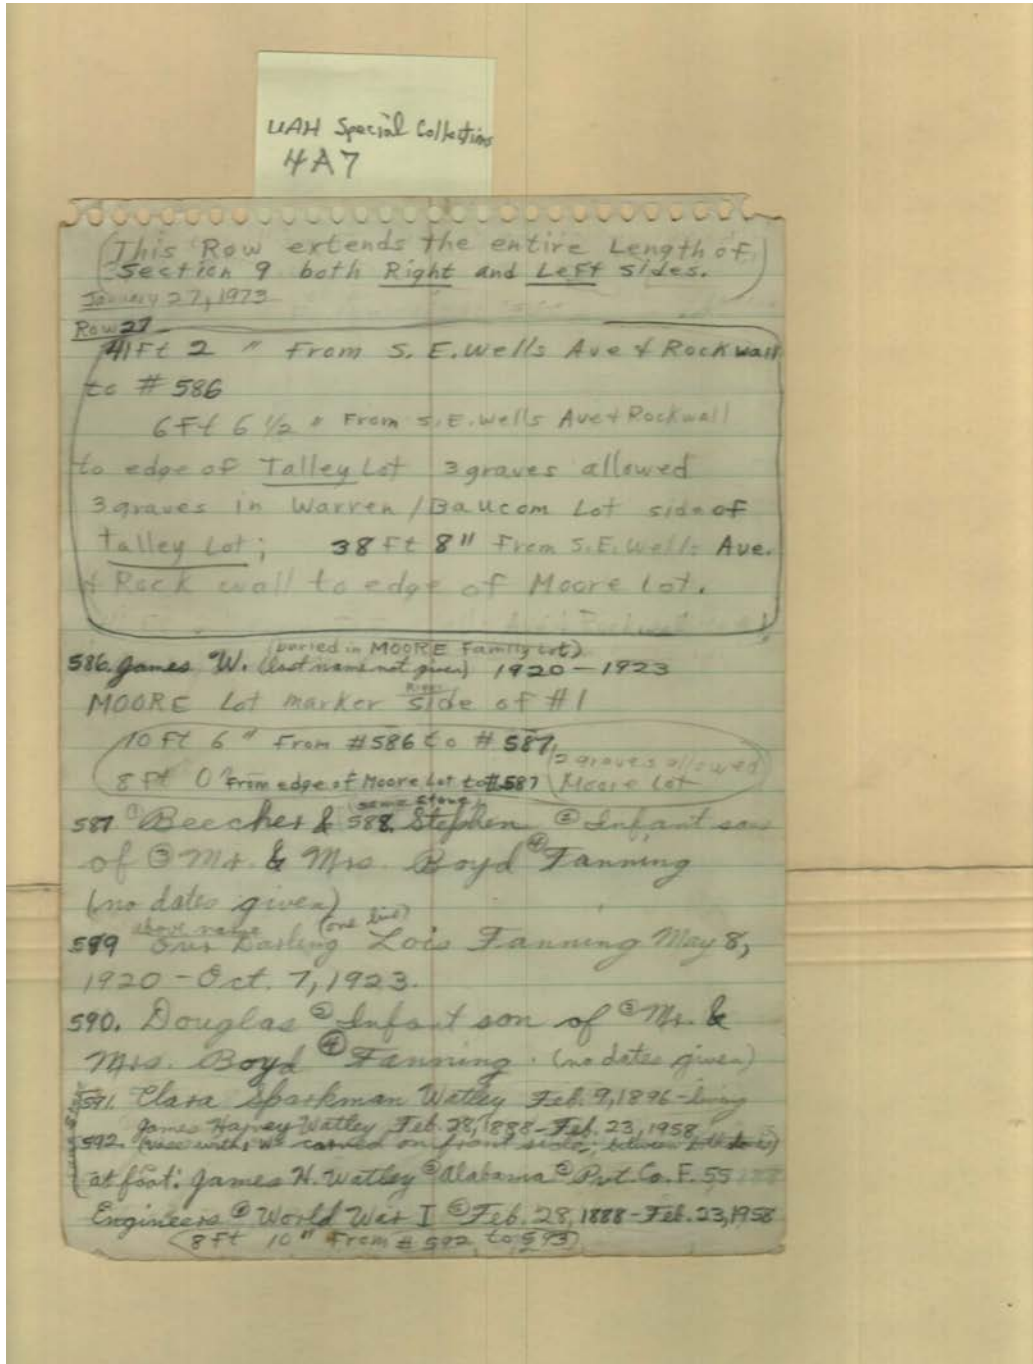 UAH Special Collections
4A7
(This Row extends the entire Length of
Section 9 both Right and Left sides.)
January 27, 1973
Row 27
41 Ft 2 " From S. E. Wells Ave & Rock wall
to # 586
6 Ft 6 1/2 " From S. E. Wells Ave & Rockwall
to edge of Talley Lot 3 graves allowed
3 graves in Warren / Baucom Lot side of
Talley Lot; 38 Ft 8" From S. E. Wells Ave.
& Rock wall to edge of Moore Lot.
(buried in MOORE Family Lot)
586. James W. (last name not given) 1920 - 1923
MOORE Lot marker side of #1
10 Ft 6 " From #586 to #587
8 Ft 0" From edge of Moore Lot to #587
2 graves allowed
Moore Lot
(same stone)
587 ① Beecher & 588. Stephen ② Infant sons
of ③ Mr. & Mrs. Boyd ④ Fanning
(no dates given)
above name (one line)
589 Our Darling Lois Fanning May 8,
1920 - Oct. 7, 1923.
590. Douglas ② Infant son of ③ Mr. &
Mrs. Boyd ④ Fanning. (no dates given)
591. Clara Sparkman Watley Feb. 9, 1896 - living
James Harvey Watley Feb. 28, 1888 - Feb. 23, 1958
592. (vase with W carved on front side; between
at foot: James H. Watley ② Alabama ③ Pvt. Co. F. 55
Engineers ④ World War I ⑤ Feb. 28, 1888 - Feb. 23, 1958
(8 Ft 10 " From # 592 to 593)